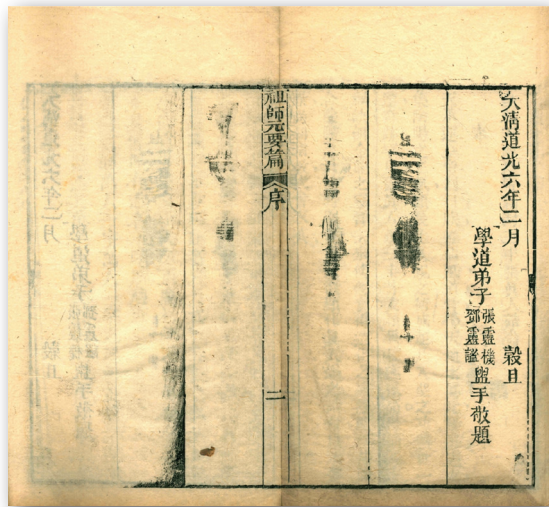 大清道光六年二月 穀旦
學道弟子 張靈機 鄧靈謐 盥手敬題
祖師元要篇 序 二